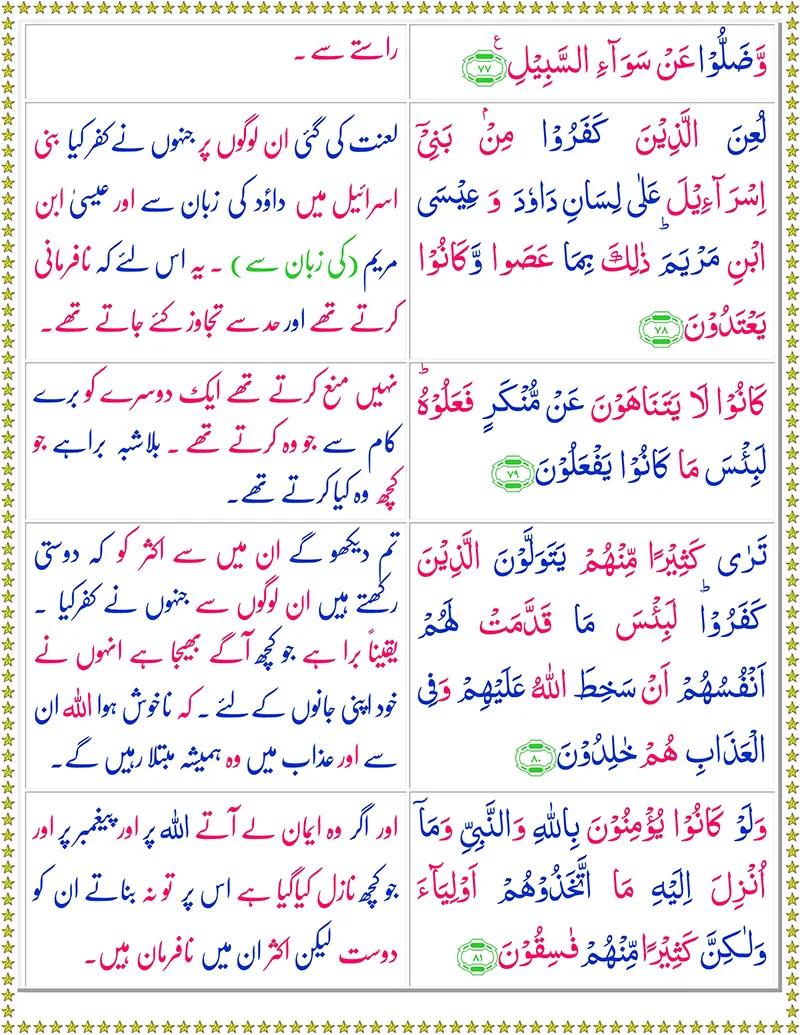 وَّضَلُّوْا عَنْ سَوَآءِ السَّبِیْلِ ع ۷۷
راستے سے ۔
لُعِنَ الَّذِیْنَ كَفَرُوْا مِنْۢ بَنِیْۤ
اِسْرَآءِیْلَ عَلٰی لِسَانِ دَاوٗدَ وَ عِیْسَی
ابْنِ مَرْیَمَ ؕ ذٰلِكَ بِمَا عَصَوا وَّكَانُوْا
یَعْتَدُوْنَ ۷۸
لعنت کی گئی ان لوگوں پر جنہوں نے کفر کیا بنی
اسرائیل میں داؤد کی زبان سے اور عیسیٰ ابن
مریم (کی زبان سے) ۔ یہ اس لئے کہ نافرمانی
کرتے تھے اور حد سے تجاوز کئے جاتے تھے۔
كَانُوْا لَا یَتَنَاهَوْنَ عَنْ مُّنْكَرٍ فَعَلُوْهُ ؕ
لَبِئْسَ مَا كَانُوْا یَفْعَلُوْنَ ۷۹
نہیں منع کرتے تھے ایک دوسرے کو برے
کام سے جو وہ کرتے تھے ۔ بلاشبہ براہے جو
کچھ وہ کیا کرتے تھے۔
تَرٰی كَثِیْرًا مِّنْهُمْ یَتَوَلَّوْنَ الَّذِیْنَ
كَفَرُوْا ؕ لَبِئْسَ مَا قَدَّمَتْ لَهُمْ
اَنْفُسُهُمْ اَنْ سَخِطَ اللهُ عَلَیْهِمْ وَفِی
الْعَذَابِ هُمْ خٰلِدُوْنَ ۸۰
تم دیکھو گے ان میں سے اکثر کو کہ دوستی
رکھتے ہیں ان لوگوں سے جنہوں نے کفر کیا ۔
یقیناً برا ہے جو کچھ آگے بھیجا ہے انہوں نے
خود اپنی جانوں کے لئے ۔ کہ ناخوش ہوا الله ان
سے اور عذاب میں وہ ہمیشہ مبتلا رہیں گے۔
وَلَوْ كَانُوْا یُؤْمِنُوْنَ بِاللهِ وَالنَّبِیِّ وَمَاۤ
اُنْزِلَ اِلَیْهِ مَا اتَّخَذُوْهُمْ اَوْلِیَآءَ
وَلٰكِنَّ كَثِیْرًا مِّنْهُمْ فٰسِقُوْنَ ۸۱
اور اگر وہ ایمان لے آتے الله پر اور پیغمبر پر اور
جو کچھ نازل کیاگیا ہے اس پر تو نہ بناتے ان کو
دوست لیکن اکثر ان میں نافرمان ہیں۔